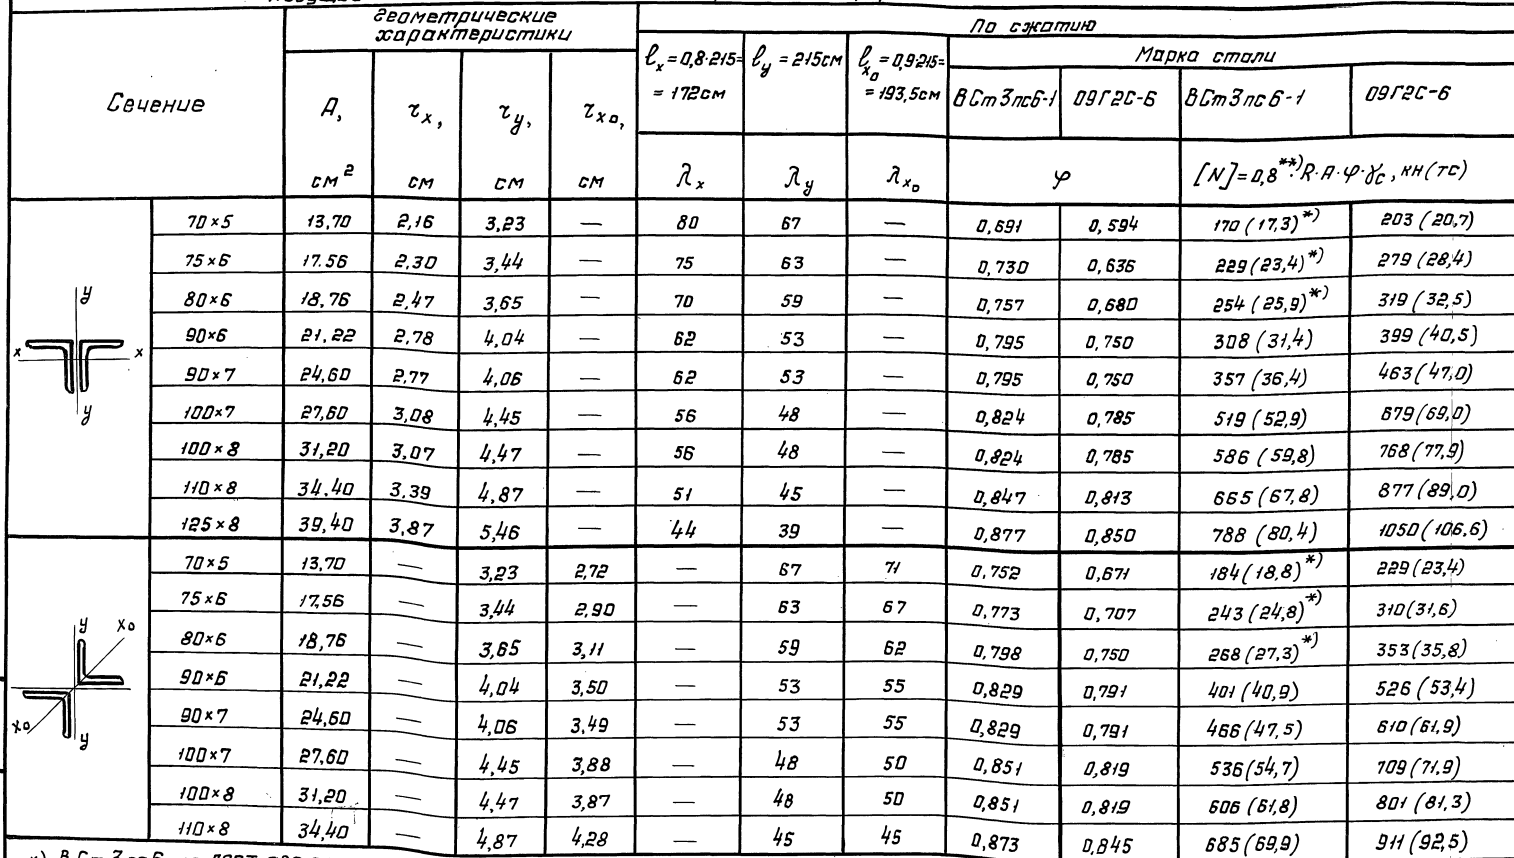 Геометрические характеристики
По сжатию
Сечение
A, см²
r x, см
r y, см
r x₀, см
l x = 0,8·215= = 172см
l y = 215см
l x₀ = 0,9·215= = 193,5см
Марка стали
ВСт3пс6-1 09Г2С-6 ВСт3пс6-1 09Г2С-6
λ x λ y λ x₀ φ [N]=0,8**)·R·A·φ·γc, кн(тс)
70×5 13,70 2,16 3,23 — 80 67 — 0,691 0,594 170(17,3)*) 203(20,7)
75×6 17.56 2,30 3,44 — 75 63 — 0,730 0,636 229(23,4)*) 279(28,4)
80×6 18,76 2,47 3,65 — 70 59 — 0,757 0,680 254(25,9)*) 319(32,5)
90×6 21,22 2,78 4,04 — 62 53 — 0,795 0,750 308(31,4) 399(40,5)
90×7 24,60 2,77 4,06 — 62 53 — 0,795 0,750 357(36,4) 463(47,0)
100×7 27,60 3,08 4,45 — 56 48 — 0,824 0,785 519(52,9) 679(69,0)
100×8 31,20 3,07 4,47 — 56 48 — 0,824 0,785 586(59,8) 768(77,9)
110×8 34.40 3,39 4,87 — 51 45 — 0,847 0,813 665(67,8) 877(89,0)
125×8 39,40 3,87 5,46 — 44 39 — 0,877 0,850 788(80,4) 1050(106,6)
y
x x
y
70×5 13,70 — 3,23 2,72 — 67 71 0,752 0,671 184(18,8)*) 229(23,4)
75×6 17,56 — 3,44 2,90 — 63 67 0,773 0,707 243(24,8)*) 310(31,6)
80×6 18,76 — 3,65 3,11 — 59 62 0,798 0,750 268(27,3)*) 353(35,8)
90×6 21,22 — 4,04 3,50 — 53 55 0,829 0,791 401(40,9) 526(53,4)
90×7 24,60 — 4,06 3,49 — 53 55 0,829 0,791 466(47,5) 610(61,9)
100×7 27,60 — 4,45 3,88 — 48 50 0,851 0,819 536(54,7) 709(71,9)
100×8 31,20 — 4,47 3,87 — 48 50 0,851 0,819 606(61,8) 801(81,3)
110×8 34,40 — 4,87 4,28 — 45 45 0,873 0,845 685(69,9) 911(92,5)
y x₀
x₀ y